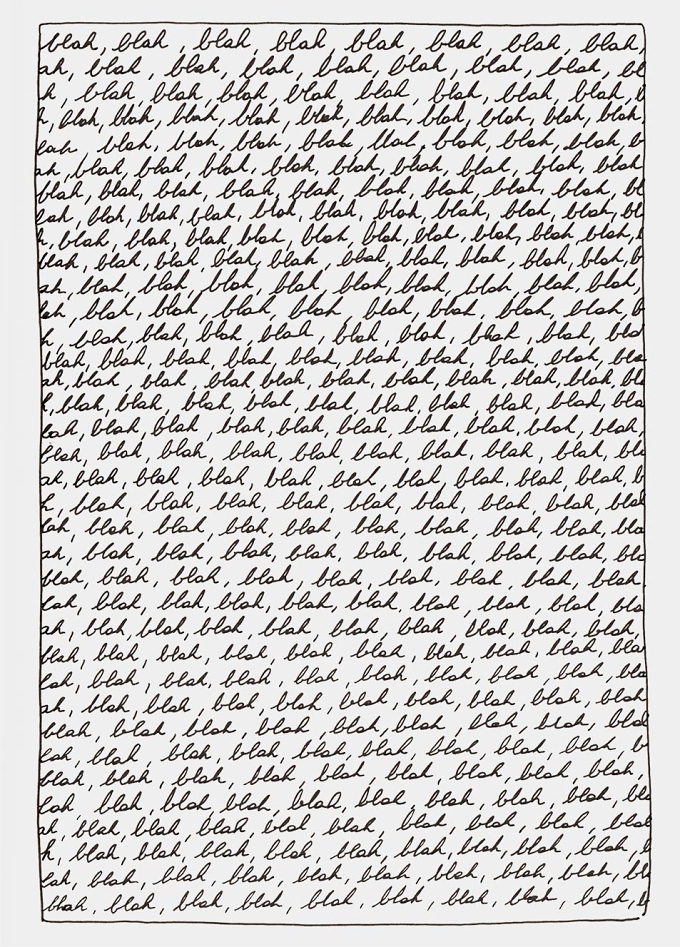 blah, blah, blah, blah, blah, blah, blah, blah,
ah, blah, blah, blah, blah, blah, blah, blah, bl
h, blah, blah, blah, blah, blah, blah, blah, b
h, blah, blah, blah, blah, blah, blah, blah, blah, blah,
blah, blah, blah, blah, blah, blah, blah, blah, b
ah, blah, blah, blah, blah, blah, blah, blah, blah, blah
blah, blah, blah, blah, blah, blah, blah, blah, blah, bl
lah, blah, blah, blah, blah, blah, blah, blah, blah, blah, bl
h, blah, blah, blah, blah, blah, blah, blah, blah, blah, b
blah, blah, blah, blah, blah, blah, blah, blah, blah, blah, b
ah, blah, blah, blah, blah, blah, blah, blah, blah,
lah, blah, blah, blah, blah, blah, blah, blah, blah, b
h, blah, blah, blah, blah, blah, blah, blah, blah, bla
blah, blah, blah, blah, blah, blah, blah, blah, blah, bla
ah, blah, blah, blah, blah, blah, blah, blah, blah, blah, bl
h, blah, blah, blah, blah, blah, blah, blah, blah, blah, bla
lah, blah, blah, blah, blah, blah, blah, blah, blah, blah,
blah, blah, blah, blah, blah, blah, blah, blah, blah, bl
ah, blah, blah, blah, blah, blah, blah, blah, blah, blah, b
h, blah, blah, blah, blah, blah, blah, blah, blah, blah
lah, blah, blah, blah, blah, blah, blah, blah, blah, bla
ah, blah, blah, blah, blah, blah, blah, blah, blah, bla
blah, blah, blah, blah, blah, blah, blah, blah, blah
lah, blah, blah, blah, blah, blah, blah, blah, blah, bla
ah, blah, blah, blah, blah, blah, blah, blah, blah, blah,
blah, blah, blah, blah, blah, blah, blah, blah, blah, bla
lah, blah, blah, blah, blah, blah, blah, blah, blah, bla
ah, blah, blah, blah, blah, blah, blah, blah, blah
blah, blah, blah, blah, blah, blah, blah, blah, bla
lah, blah, blah, blah, blah, blah, blah, blah, blah, b
blah, blah, blah, blah, blah, blah, blah, blah, blah,
lah, blah, blah, blah, blah, blah, blah, blah, blah, bla
ah, blah, blah, blah, blah, blah, blah, blah, blah, bla
h, blah, blah, blah, blah, blah, blah, blah, blah, blah, b
lah, blah, blah, blah, blah, blah, blah, blah, blah, bl
blah, blah, blah, blah, blah, blah, blah, blah, blah, b